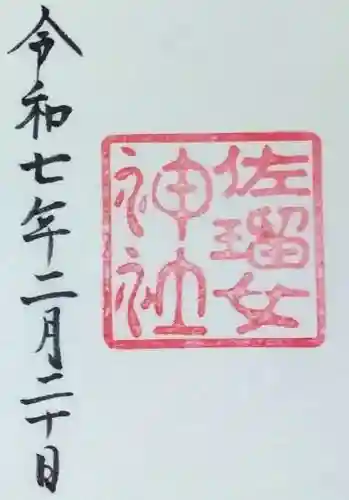 佐瑠女
神社
令和七年二月二十日